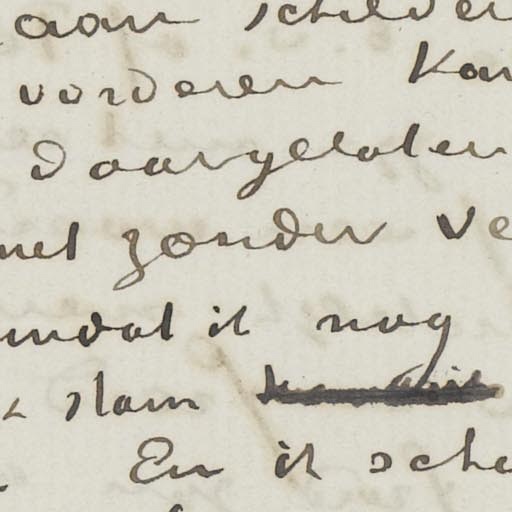 aan schilder
vorderen kan
daargelaten
met zonder ve
omdat ik nog
slam
En ik sche